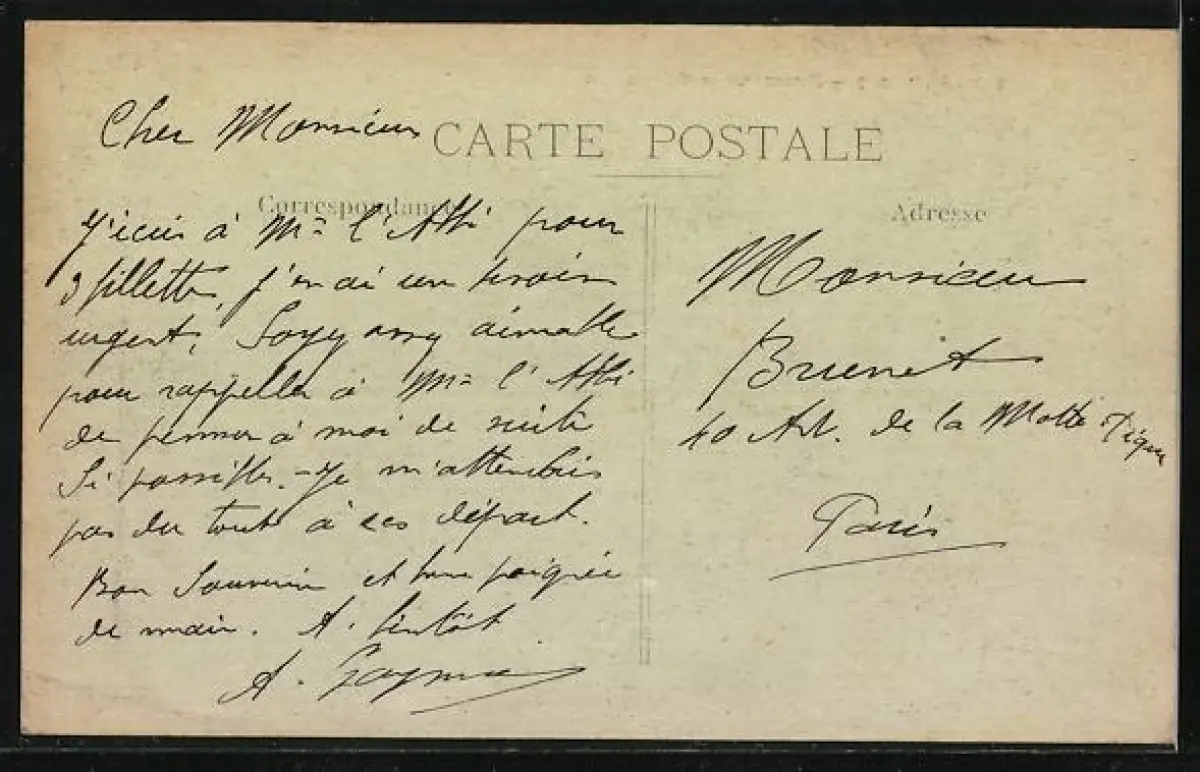 Cher Monsieur
CARTE POSTALE
Correspondance
J'écris à Mr l'Abbé pour
3 fillettes, j'en ai un besoin
urgent, Soyez assez aimable
pour rappeller à Mr l'Abbé
de penser à moi de suite
Si possible. - Je m'attendais
pas du tout à ces départ.
Bon Souvenir et bonne poignée
de main. A. bientôt
A.
Adresse
Monsieur
Brunet
40 de la Motte Piquet
Paris